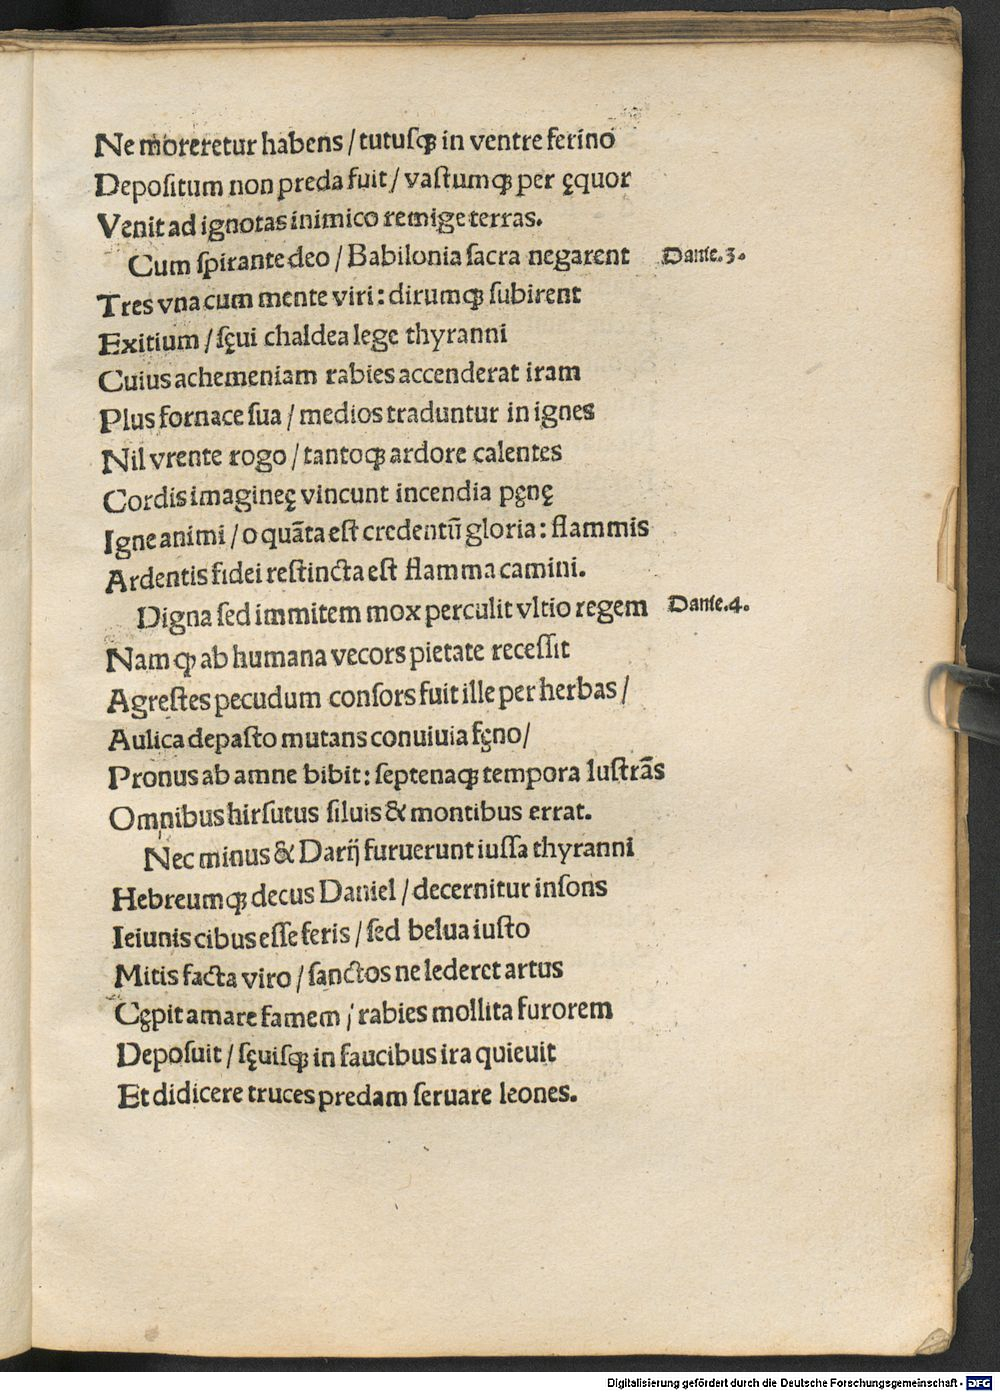 Ne moreretur habens / tutusꝗ in ventre ferino
Depoſitum non preda fuit / vaſtumꝗ per ęquor
Venit ad ignotas inimico remige terras.
Cum ſpirante deo / Babilonia ſacra negarent Danie.3.
Tres vna cum mente viri: dirumꝗ ſubirent
Exitium / ſęui chaldea lege thyranni
Cuius achemeniam rabies accenderat iram
Plus fornace ſua / medios traduntur in ignes
Nil vrente rogo / tantoꝗ ardore calentes
Cordis imagineę vincunt incendia pęnę
Igne animi / o quãta eſt credentũ gloria: flammis
Ardentis fidei reſtincta eſt flamma camini.
Digna ſed immitem mox perculit vltio regem Danie.4.
Namꝗ ab humana vecors pietate receſſit
Agreſtes pecudum conſors fuit ille per herbas /
Aulica depaſto mutans conuiuia fęno /
Pronus ab amne bibit: ſeptenaꝗ tempora luſtrãs
Omnibus hirſutus ſiluis & montibus errat.
Nec minus & Darĳ furuerunt iuſſa thyranni
Hebreumꝗ decus Daniel / decernitur inſons
Ieiunis cibus eſſe feris / ſed belua iuſto
Mitis facta viro / ſanctos ne lederet artus
Cępit amare famem / rabies mollita furorem
Depoſuit / ſęuiſꝗ in faucibus ira quieuit
Et didicere truces predam ſeruare leones.
Digitalisierung gefördert durch die Deutsche Forschungsgemeinschaft - DFG